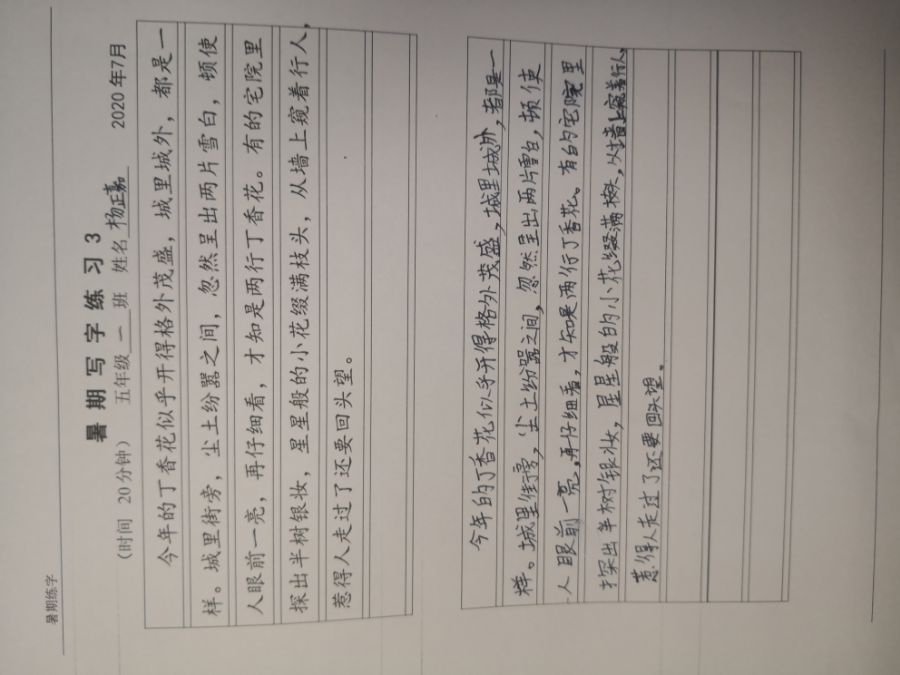 暑期练字
暑期写字练习3
（时间 20分钟） 五年级一班 姓名杨正嘉 2020年7月
今年的丁香花似乎开得格外茂盛，城里城外，都是一
样。城里街旁，尘土纷嚣之间，忽然呈出两片雪白，顿使
人眼前一亮，再仔细看，才知是两行丁香花。有的宅院里
探出半树银妆，星星般的小花缀满枝头，从墙上窥着行人，
惹得人走过了还要回头望。
今年的丁香花似乎开得格外茂盛，城里城外，都是一
样。城里街旁，尘土纷嚣之间，忽然呈出两片雪白，顿使
人眼前一亮，再仔细看，才知是两行丁香花。有的宅院里
探出半树银妆，星星般的小花缀满枝头，从墙上窥着行人，
惹得人走过了还要回头望。